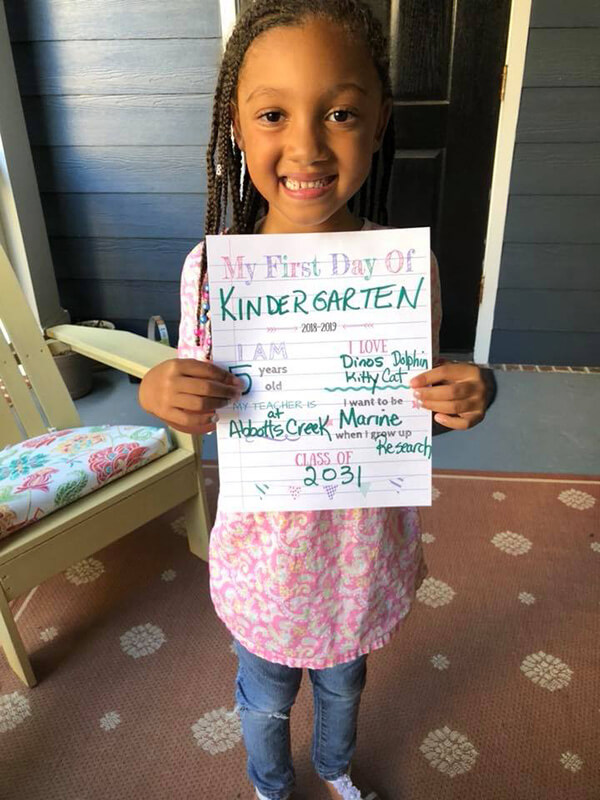 My First Day Of
KINDERGARTEN
2018-2019
I AM
5 years
old
I LOVE
Dinos Dolphin
Kitty Cat
MY TEACHER IS
at
Abbotts Creek
I want to be
Marine
when I grow up
Research
CLASS OF
2031